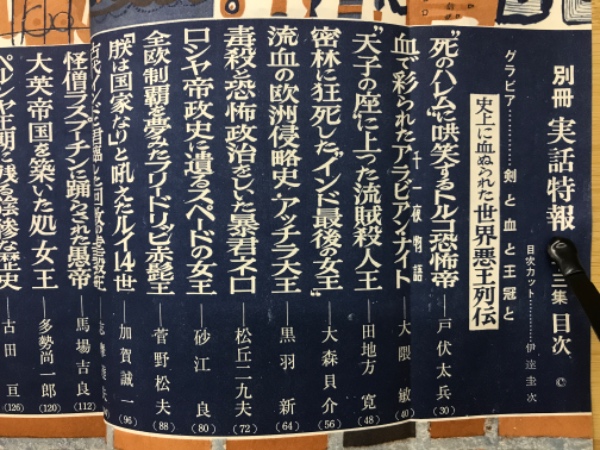 別冊 実話特報
三集 目次 ©
目次カット…………伊達圭次
グラビア…………剣と血と王冠と
史上に血ぬられた世界悪王列伝
“死のハレム”に哄笑するトルコ恐怖帝 戸伏太兵(30)
血で彩られたアラビアン・ナイト 千一夜物語 大隈敏(40)
“天子の座”に上った流賊殺人王 田地方寛(48)
密林に狂死した“インド最後の女王” 大森貝介(56)
流血の欧洲侵略史・アッチラ大王 黒羽新(64)
毒殺と恐怖政治をしいた暴君ネロ 松丘二九夫(72)
ロシヤ帝政史に遺るスペードの女王 砂江良(80)
全欧制覇を夢みたフリードリッヒ赤髭王 菅野松夫(88)
「朕は国家なり」と吼えたルイ14世 加賀誠一(96)
古代インドに君臨した回教の
怪僧ラスプーチンに踊らされた愚帝 馬場吉良(112)
大英帝国を築いた処女王 多勢尚一郎(120)
ペルシャ王朝に残る陰惨な禁史 古田亘(126)